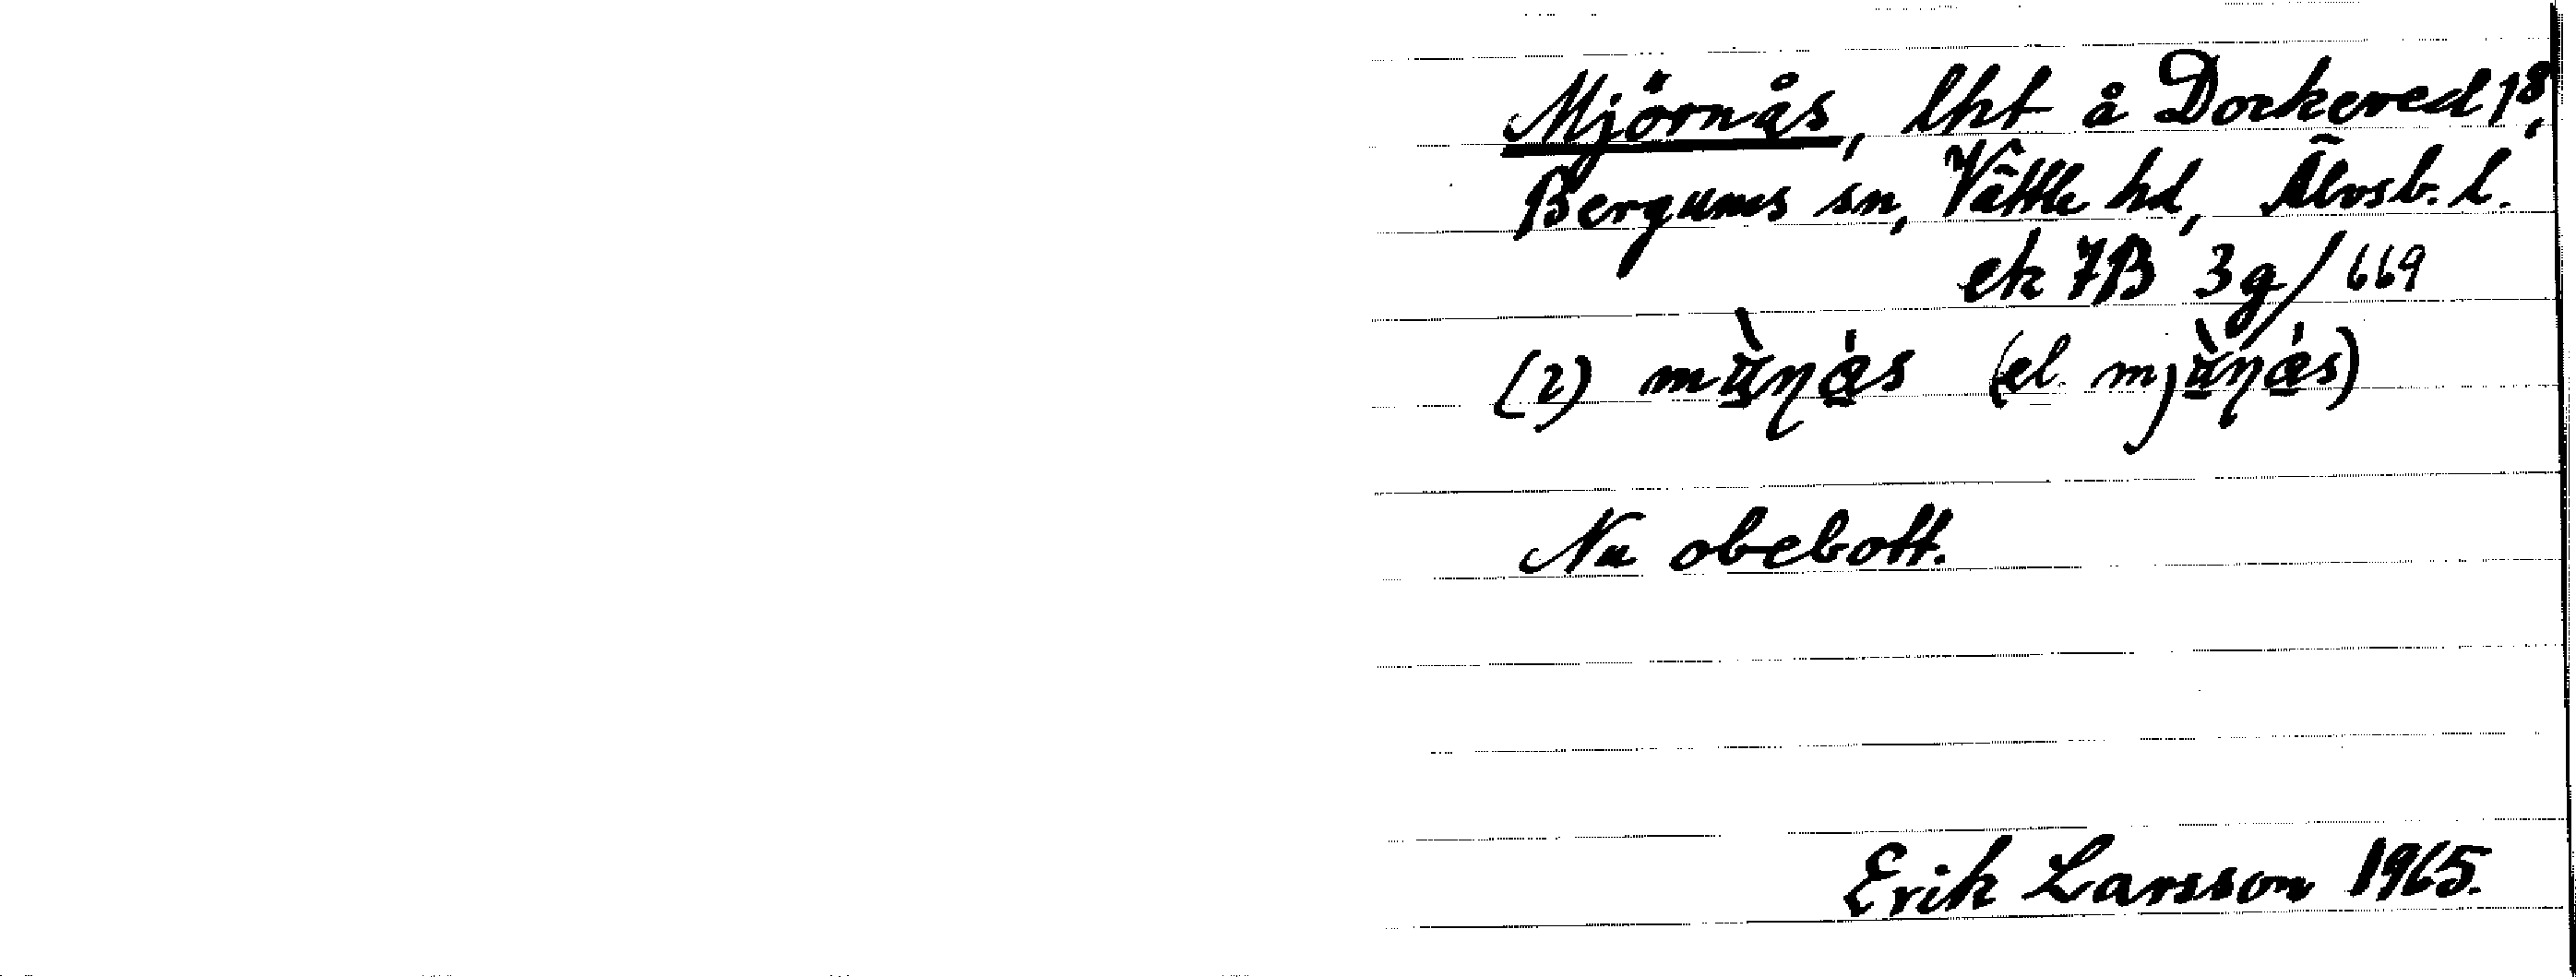 Mjörnås, lht å Dockered 1⁸,
Bergums sn, Vättle hd, Älvsb. l.
ek 7B 3g/669
(2) (el.
Nu obebott.
Erik Larsson 1965.